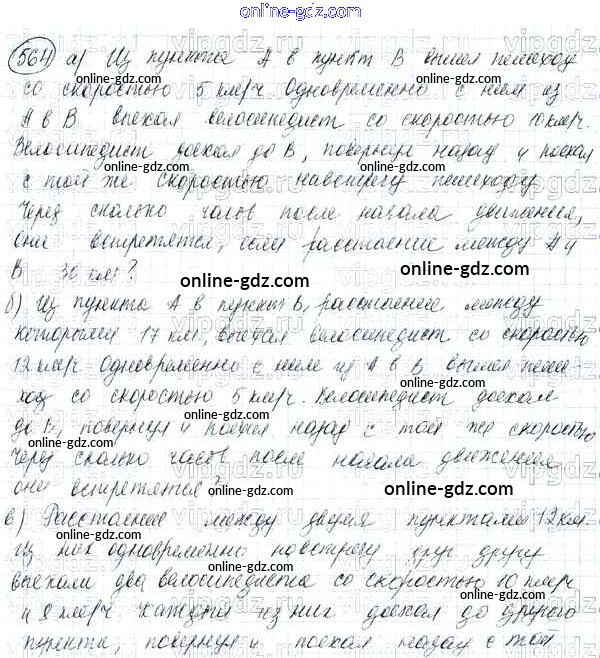 online-gdz.com
564 а) Из пункта А в пункт В вышел пешеход
online-gdz.com online-gdz.com
со скоростью 5 км/ч. Одновременно с ним из
А в В выехал велосипедист со скоростью 10 км/ч.
online-gdz.com online-gdz.com
Велосипедист доехал до В, повернул назад и поехал
с той же скоростью навстречу пешеходу.
online-gdz.com
Через сколько часов после начала движения
они встретятся, если расстояние между А и
В 30 км?
online-gdz.com online-gdz.com
б) Из пункта А в пункт В, расстояние между
которыми 17 км, выехал велосипедист со скоростью
online-gdz.com
12 км/ч. Одновременно с ним из А в В вышел пеше-
online-gdz.com
ход со скоростью 5 км/ч. Велосипедист доехал
online-gdz.com
до В, повернул и поехал назад с той же скоростью
Через сколько часов после начала движения
они встретятся?
online-gdz.com online-gdz.com
в) Расстояние между двумя пунктами 12 км.
Из них одновременно навстречу друг другу
online-gdz.com
выехали два велосипедиста со скоростью 10 км/ч
и 8 км/ч. Каждый из них доехал до другого
online-gdz.com
пункта, повернул и поехал назад с той